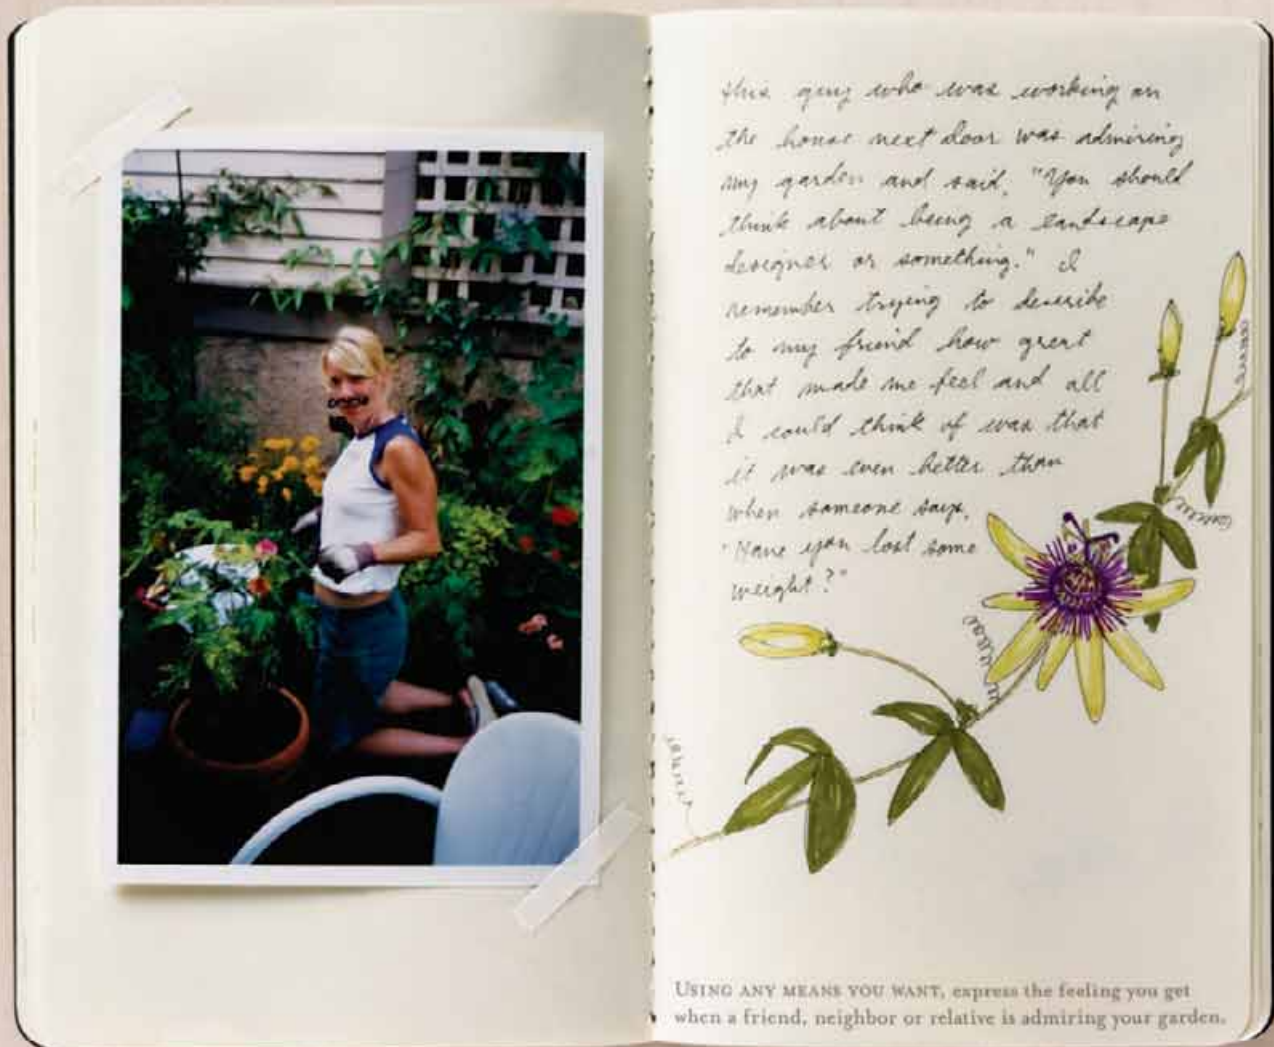 this guy who was working on
the house next door was admiring
my garden and said, "You should
think about being a landscape
designer or something." I
remember trying to describe
to my friend how great
that made me feel and all
I could think of was that
it was even better than
when someone says,
"Have you lost some
weight?"
USING ANY MEANS YOU WANT, express the feeling you get
when a friend, neighbor or relative is admiring your garden.